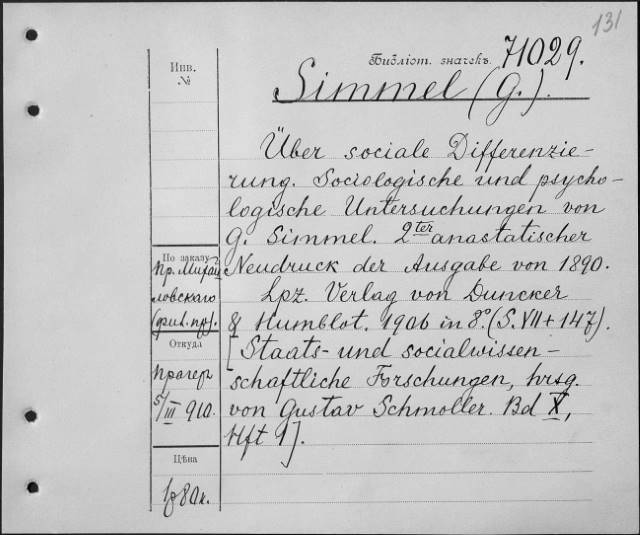 131
Библіот. значекъ 71029.
Инв.
№
Simmel (G.).
Über sociale Differenzie-
rung. Sociologische und psycho-
logische Untersuchungen von
G. Simmel. 2ter anastatischer
Neudruck der Ausgabe von 1890.
Lpz. Verlag von Duncker
& Humblot. 1906 in 8º. (S. VII + 147).
[Staats- und socialwissen-
schaftliche Forschungen, hrsg.
von Gustav Schmoller. Bd X,
Hft 1].
По заказу
Пр. Михай
ловскаго
Откуда
Прагеръ
5/III 910.
Цѣна
1р 80к.